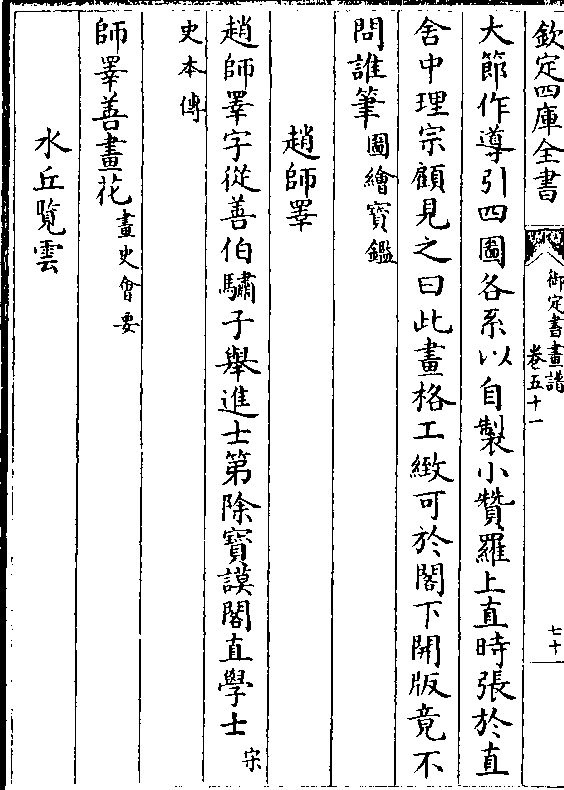 欽定四庫全書
御定書畫譜
卷五十一
七十
大節作導引四圖各系以自製小贊羅上直時張於直
舍中理宗顧見之曰此畫格工緻可於閣下開版竟不
問誰筆圖繪寶鑑
趙師睪
趙師睪字從善伯驌子舉進士第除寶謨閣直學士宋
史本傳
師睪善畫花畫史會要
水丘覽雲